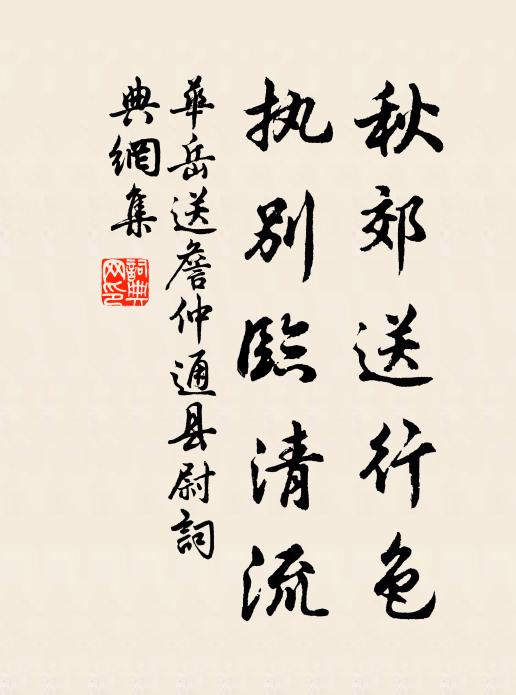 秋郊送行色
执别臨清流
華岳送詹仲通县尉詞
典網集
詞典
网印